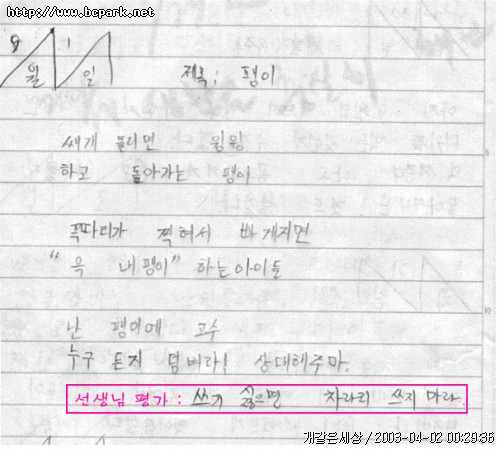 http://www.bcpark.net
9월 1일 제목: 팽이
쌔게 돌리면 윙윙
하고 돌아가는 팽이
꼭따리가 찍혀서 빠게지면
“윽 내팽이” 하는아이들
난 팽이에 고수
누구 든지 덤벼라! 상대해주마.
선생님 평가 : 쓰기 싫으면 차라리 쓰지 마라.
개같은세상 / 2003-04-02 00:29:36